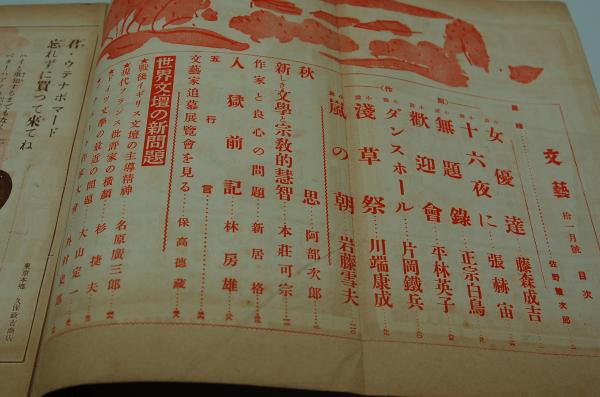 文藝 拾一月號 目次
女優達 藤森成吉
十六夜に 張赫宙
無題錄 正宗白鳥
歡迎會 平林英子
ダンスホール 片岡鐵兵
淺草祭 川端康成
嵐の朝 岩藤雪夫
秋思 阿部次郎
新しき文學と宗敎的慧智 本莊可宗
作家と良心の問題 新居格
入獄前記 林房雄
五行言
文藝家追慕展覽會を見る 保高德藏
世界文壇の新問題
★戰後イギリス文壇の主導精神 名原廣三郎
★現代フランス批評家の橫顏 杉捷夫
大山定一
君・ウテナポマード
忘れずに買つて來てね
東京本鄕 久保政吉商店